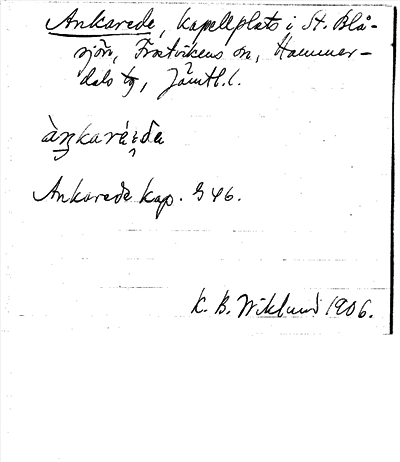 Ankarede, kapellplats i St. Blå-
sjön, Frostvikens sn, Hammer-
dals tg, Jämtl. l.
àŋkaráɛ̀da
Ankarede kap. G 46.
K. B. Wiklund 1906.